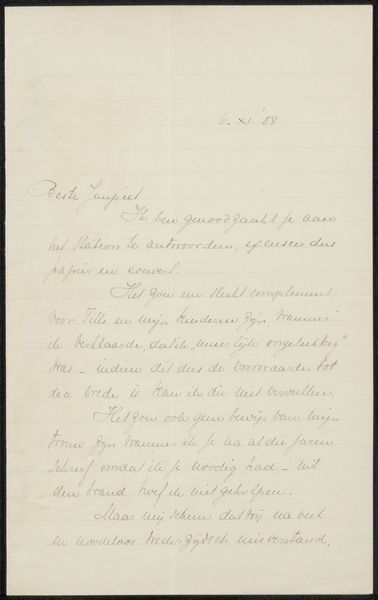 6. XI. '08.
Beste Janpiet.
Ik ben genoodzaakt je aan
het Station te antwoorden, excuseer dus
papier en couvert.
Het zou een slecht compliment
voor Tille en mijn kinderen zijn, wanneer
ik verklaarde, dat ik "innerlijk ongelukkig"
was – indien dit dus de voorwaarde tot
den vrede is, kan ik die niet vervullen.
Het zou ook geen bewijs van mijn
trouw zijn wanneer ik je na al die jaren
schreef omdat ik je noodig had – uit
den brand hoef ik niet geholpen.
Maar mij scheen dat wij na veel
en noodeloos wederzijdsch misverstand,